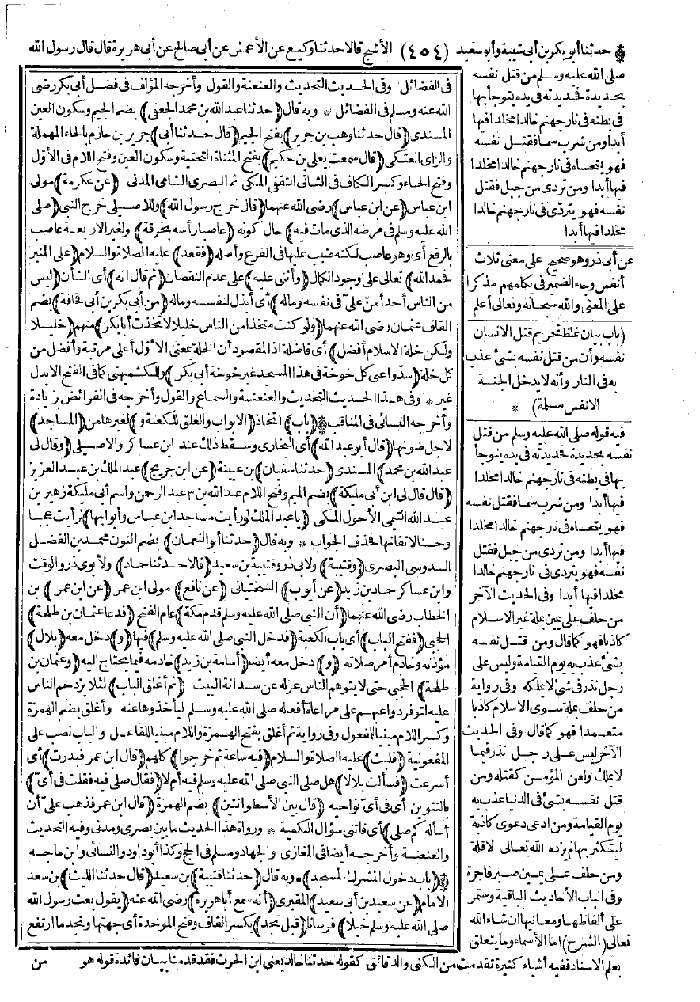 * حدثنا أبو بكر بن أبي شيبة وأبو سعيد (٤٥٤) الأشج قالا حدثنا وكيع عن الأعمش عن أبي صالح عن أبي هريرة قال قال رسول الله
صلى الله عليه وسلم من قتل نفسه
بحديدة فحديدته في يده يتوجأ بها
في بطنه في نار جهنم خالدا مخلدا فيها
أبدا ومن شرب سما فقتل نفسه
فهو يتحساه في نار جهنم خالدا مخلدا
فيها أبدا ومن تردى من جبل فقتل
نفسه فهو يتردى في نار جهنم خالدا
مخلدا فيها أبدا
عن أبي ذر وهو صحيح على معنى ثلاث
أنفس وجاء الضمير في بكامهم مذكرا
على المعنى والله سبحانه وتعالى أعلم
(باب بيان غلظ تحريم قتل الانسان
نفسه وأن من قتل نفسه بشئ عذب
به في النار وأنه لا يدخل الجنة
الا نفس مسلمة) *
فيه قوله صلى الله عليه وسلم من قتل
نفسه بحديدة فحديدته في يده يتوجأ
بها في بطنه في نار جهنم خالدا مخلدا
فيها أبدا ومن شرب سما فقتل نفسه
فهو يتحساه في نار جهنم خالدا مخلدا
فيها أبدا ومن تردى من جبل فقتل
نفسه فهو يتردى في نار جهنم خالدا
مخلدا فيها أبدا وفي الحديث الآخر
من حلف على يمين بملة غير الاسلام
كاذبا فهو كما قال ومن قتل نفسه
بشئ عذب به يوم القيامة وليس على
رجل نذر في شئ لا يملكه وفي رواية
من حلف بملة سوى الاسلام كاذبا
متعمدا فهو كما قال وفي الحديث
الآخر ليس على رجل نذر فيما
لا يملك ولعن المؤمن كقتله ومن
قتل نفسه بشئ في الدنيا عذب به
يوم القيامة ومن ادعى دعوى كاذبة
ليتكثر بها لم يزده الله تعالى الا قلة
ومن حلف على يمين صبر فاجرة
وفي الباب الأحاديث الباقية وستمر
على ألفاظها ومعانيها ان شاء الله
تعالى (الشرح) اما الأسماء وما يتعلق
في الفضائل وفي الحديث التحديث والعنعنة والقول وأخرجه المؤلف في فضل أبي بكر رضي
الله عنه ومسلم في الفضائل * وبه قال (حدثنا عبد الله بن محمد الجعفي) بضم الجيم وسكون العين
المسندي (قال حدثنا وهب بن جرير) بفتح الجيم (قال حدثنا أبي) جرير بن حازم بالحاء المهملة
والزاي العتكي (قال سمعت يعلى بن حكيم) بفتح المثناة التحتية وسكون العين وفتح اللام في الأول
وفتح الحاء وكسر الكاف في الثاني الثقفي المكي ثم البصري الشامي المدني (عن عكرمة) مولى
ابن عباس (عن ابن عباس) رضي الله عنهما (قال خرج رسول الله) وللاصيلي خرج النبي (صلى
الله عليه وسلم في مرضه الذي مات فيه) حال كونه (عاصبا رأسه بخرقة) ولغير الاربعة عاصب
بالرفع أي وهو عاصب لكنه ضبب عليها في الفرع وأصله (فقعد) عليه الصلاة والسلام (على المنبر
فحمد الله) تعالى على وجود الكمال (وأثنى عليه) على عدم النقصان (ثم قال انه) أي الشأن (ليس
من الناس أحد أمن علي في نفسه وماله) أي أبذل لنفسه وماله (من أبي بكر بن أبي قحافة) بضم
القاف عثمان رضي الله عنهما (ولو كنت متخذا من الناس خليلا لاتخذت أبا بكر) منهم (خليلا
ولكن خلة الاسلام أفضل) أي فاضلة اذ المقصود أن الخلة بمعنى الاول أعلى مرتبة وأفضل من
كل خلة (سدوا عني كل خوخة في هذا المسجد غير خوخة أبي بكر) وللكشميهني كما في الفتح الا بدل
غير * وفي هذا الحديث التحديث والعنعنة والسماع والقول وأخرجه في الفرائض زيادة
وأخرجه النسائي في المناقب * (باب) اتخاذ (الابواب والغلق للكعبة و) لغيرها من (المساجد)
لاجل صونها (قال أبو عبد الله) أي البخاري وسقط ذلك عند ابن عساكر والاصيلي (وقال لي
عبد الله بن محمد) المسندي (حدثنا سفيان) بن عيينة (عن ابن جريج) عبد الملك بن عبد العزيز
(قال قال لي ابن أبي مليكة) بضم الميم وفتح اللام عبد الله بن عبد الرحمن واسم أبي مليكة زهير بن
عبد الله التيمي الأحول المكي (يا عبد الملك لو رأيت مساجد ابن عباس وأبوابها) لرأيت عجبا
وحسنا لاتقانها فحذف الجواب * وبه قال (حدثنا أبو النعمان) بضم النون محمد بن الفضل
السدوسي البصري (وقتيبة) ولابي ذر وقتيبة بن سعيد (قالا حدثنا حماد) ولابوي ذر والوقت
وابن عساكر حماد بن زيد (عن أيوب) السختياني (عن نافع) مولى ابن عمر (عن ابن عمر) بن
الخطاب رضي الله عنهما (أن النبي صلى الله عليه وسلم قدم مكة) عام الفتح (فدعا عثمان بن طلحة)
الحجبي (ففتح الباب) أي باب الكعبة (فدخل النبي صلى الله عليه وسلم) فيها (و) دخل معه (بلال)
مؤذنه وخادم أمر صلاته (و) دخل معه أيضا (أسامة بن زيد) خادمه فيما يحتاج اليه (وعثمان بن
طلحة) الحجبي حتى لا يتوهم الناس عزله عن سدانة البيت (ثم أغلق الباب) لئلا يزدحم الناس
عليه لتوفر دواعيهم على مراعاة أفعاله صلى الله عليه وسلم ليأخذوها عنه وأغلق بضم الهمزة
وكسر اللام مبنيا للمفعول وفي رواية ثم أغلق بفتح الهمزة واللام مبنيا للفاعل والباب نصب على
المفعولية (فلبث) عليه الصلاة والسلام (فيه ساعة ثم خرجوا) كلهم (قال ابن عمر فبدرت) أي
أسرعت (فسألت بلالا) هل صلى النبي صلى الله عليه وسلم فيه أم لا (فقال صلى فيه فقلت في أي)
بالتنوين أي في أي نواحيه (قال بين الأسطوانتين) بضم الهمزة (قال ابن عمر فذهب علي أن
أسأله كم صلى) أي فاتني سؤال الكمية * ورواة هذا الحديث ما بين بصري ومدني وفيه التحديث
والعنعنة وأخرجه أيضا في المغازي والجهاد ومسلم في الحج وكذا أبو داود والنسائي وابن ماجه
* (باب دخول المشرك المسجد) * وبه قال (حدثنا قتيبة) بن سعيد (قال حدثنا الليث) بن سعد
الامام (عن سعيد بن أبي سعيد) المقبري (أنه سمع أبا هريرة) رضي الله عنه (يقول بعث رسول الله
صلى الله عليه وسلم خيلا) فرسانا (قبل نجد) بكسر القاف وفتح الموحدة أي جهتها ونجد ما ارتفع
بعلم الاسناد ففيه أشياء كثيرة تقدمت من الكنى والدقائق كقوله حدثنا خالد يعني ابن الحرث فقد قدمنا بيان فائدة قوله هو من